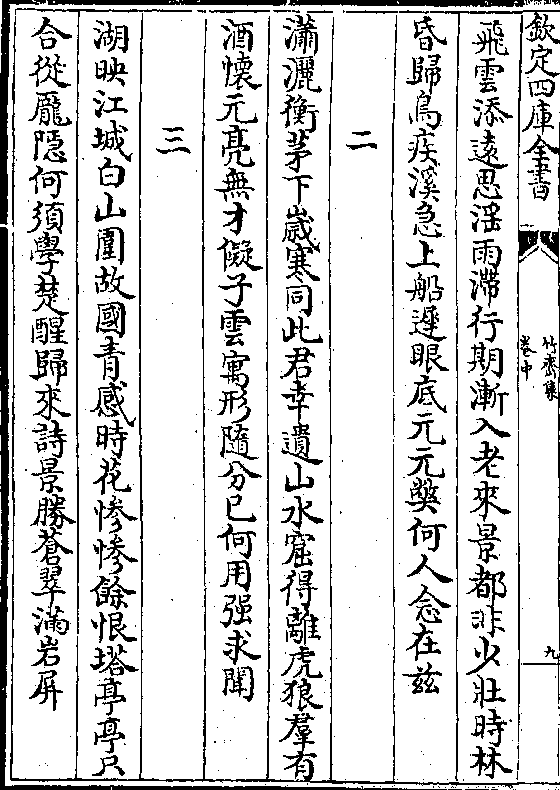 欽定四庫全書
竹齋集
卷中
九
飛雲添遠思滛雨滯行期漸入老來景都非少壯時林
昏歸鳥疾溪急上船遲眼底元元獘何人念在兹
二
瀟灑衡茅下嵗寒同此君幸遺山水窟得離虎狼羣有
酒懷元亮無才儗子雲寓形隨分已何用强求聞
三
湖映江城白山圍故國青感時花惨惨餘恨塔亭亭只
合從龐隠何須學楚醒歸來詩景勝蒼翠滿岩屏